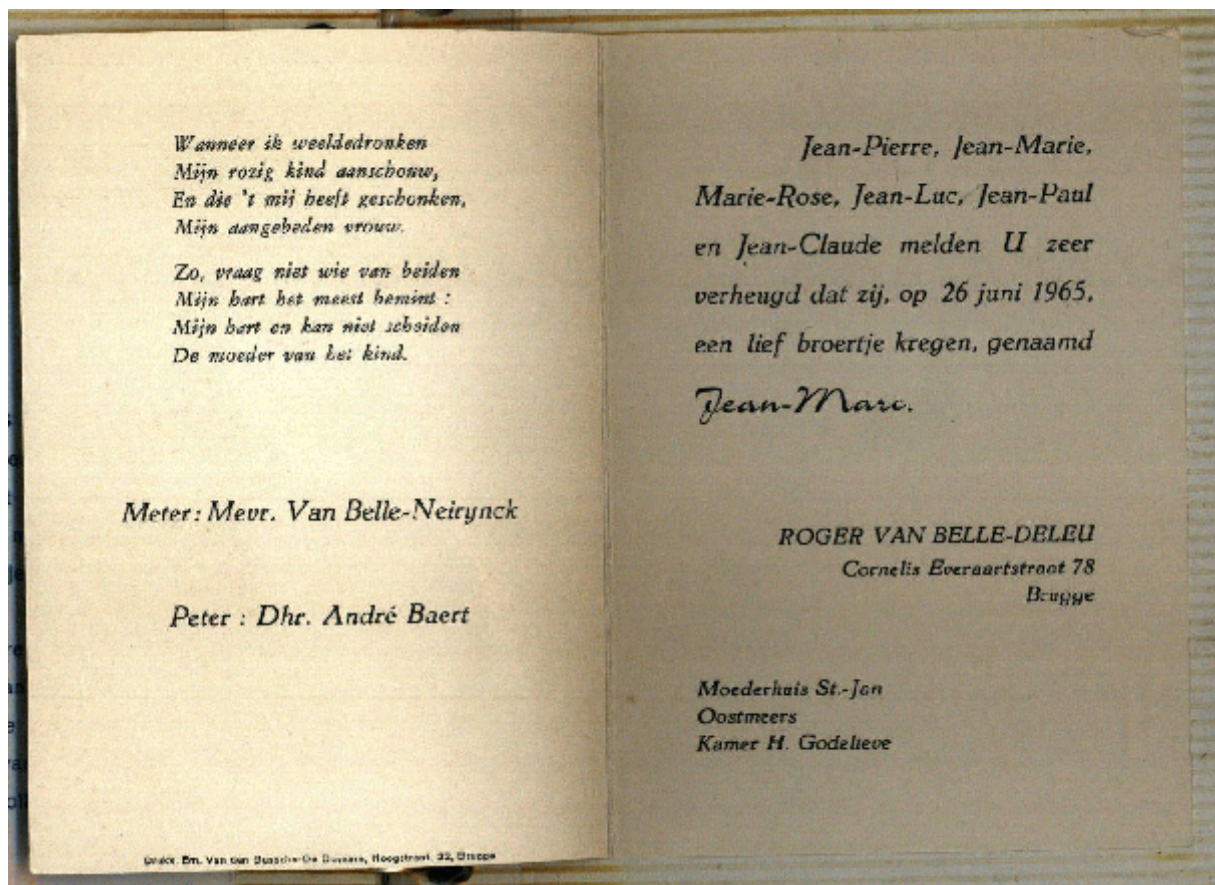 Wanneer ik weeldedronken
Mijn rozig kind aanschouw,
En die 't mij heeft geschonken,
Mijn aangebeden vrouw.
Zo, vraag niet wie van beiden
Mijn hart het meest bemint :
Mijn hart en kan niet scheiden
De moeder van het kind.
Meter: Mevr. Van Belle-Neirynck
Peter : Dhr. André Baert
Drukk. Em. Van den Bussche-De, Hoogstraat, 33, Brugge
Jean-Pierre, Jean-Marie,
Marie-Rose, Jean-Luc, Jean-Paul
en Jean-Claude melden U zeer
verheugd dat zij, op 26 juni 1965,
een lief broertje kregen, genaamd
Jean-Marc.
ROGER VAN BELLE-DELEU
Cornelis Everaartstraat 78
Brugge
Moederhuis St.-Jan
Oostmeers
Kamer H. Godelieve